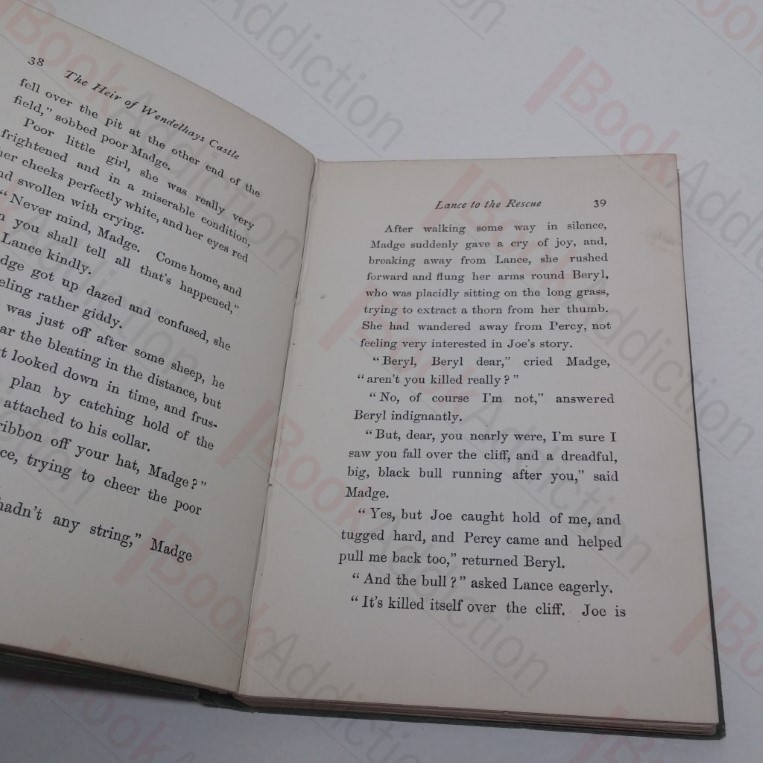 38 The Heir of Wendelhays Castle
fell over the pit at the other end of the
field," sobbed poor Madge.
Poor little girl, she was really very
frightened and in a miserable condition,
her cheeks perfectly white, and her eyes red
nd swollen with crying.
"Never mind, Madge. Come home, and
n you shall tell all that's happened,"
Lance kindly.
dge got up dazed and confused, she
eling rather giddy.
was just off after some sheep, he
ar the bleating in the distance, but
t looked down in time, and frus-
plan by catching hold of the
attached to his collar.
ribbon off your hat, Madge?"
ce, trying to cheer the poor
hadn't any string," Madge
Lance to the Rescue 39
After walking some way in silence,
Madge suddenly gave a cry of joy, and,
breaking away from Lance, she rushed
forward and flung her arms round Beryl,
who was placidly sitting on the long grass,
trying to extract a thorn from her thumb.
She had wandered away from Percy, not
feeling very interested in Joe's story.
"Beryl, Beryl dear," cried Madge,
"aren't you killed really?"
"No, of course I'm not," answered
Beryl indignantly.
"But, dear, you nearly were, I'm sure I
saw you fall over the cliff, and a dreadful,
big, black bull running after you," said
Madge.
"Yes, but Joe caught hold of me, and
tugged hard, and Percy came and helped
pull me back too," returned Beryl.
"And the bull?" asked Lance eagerly.
"It's killed itself over the cliff. Joe is
BookAddiction